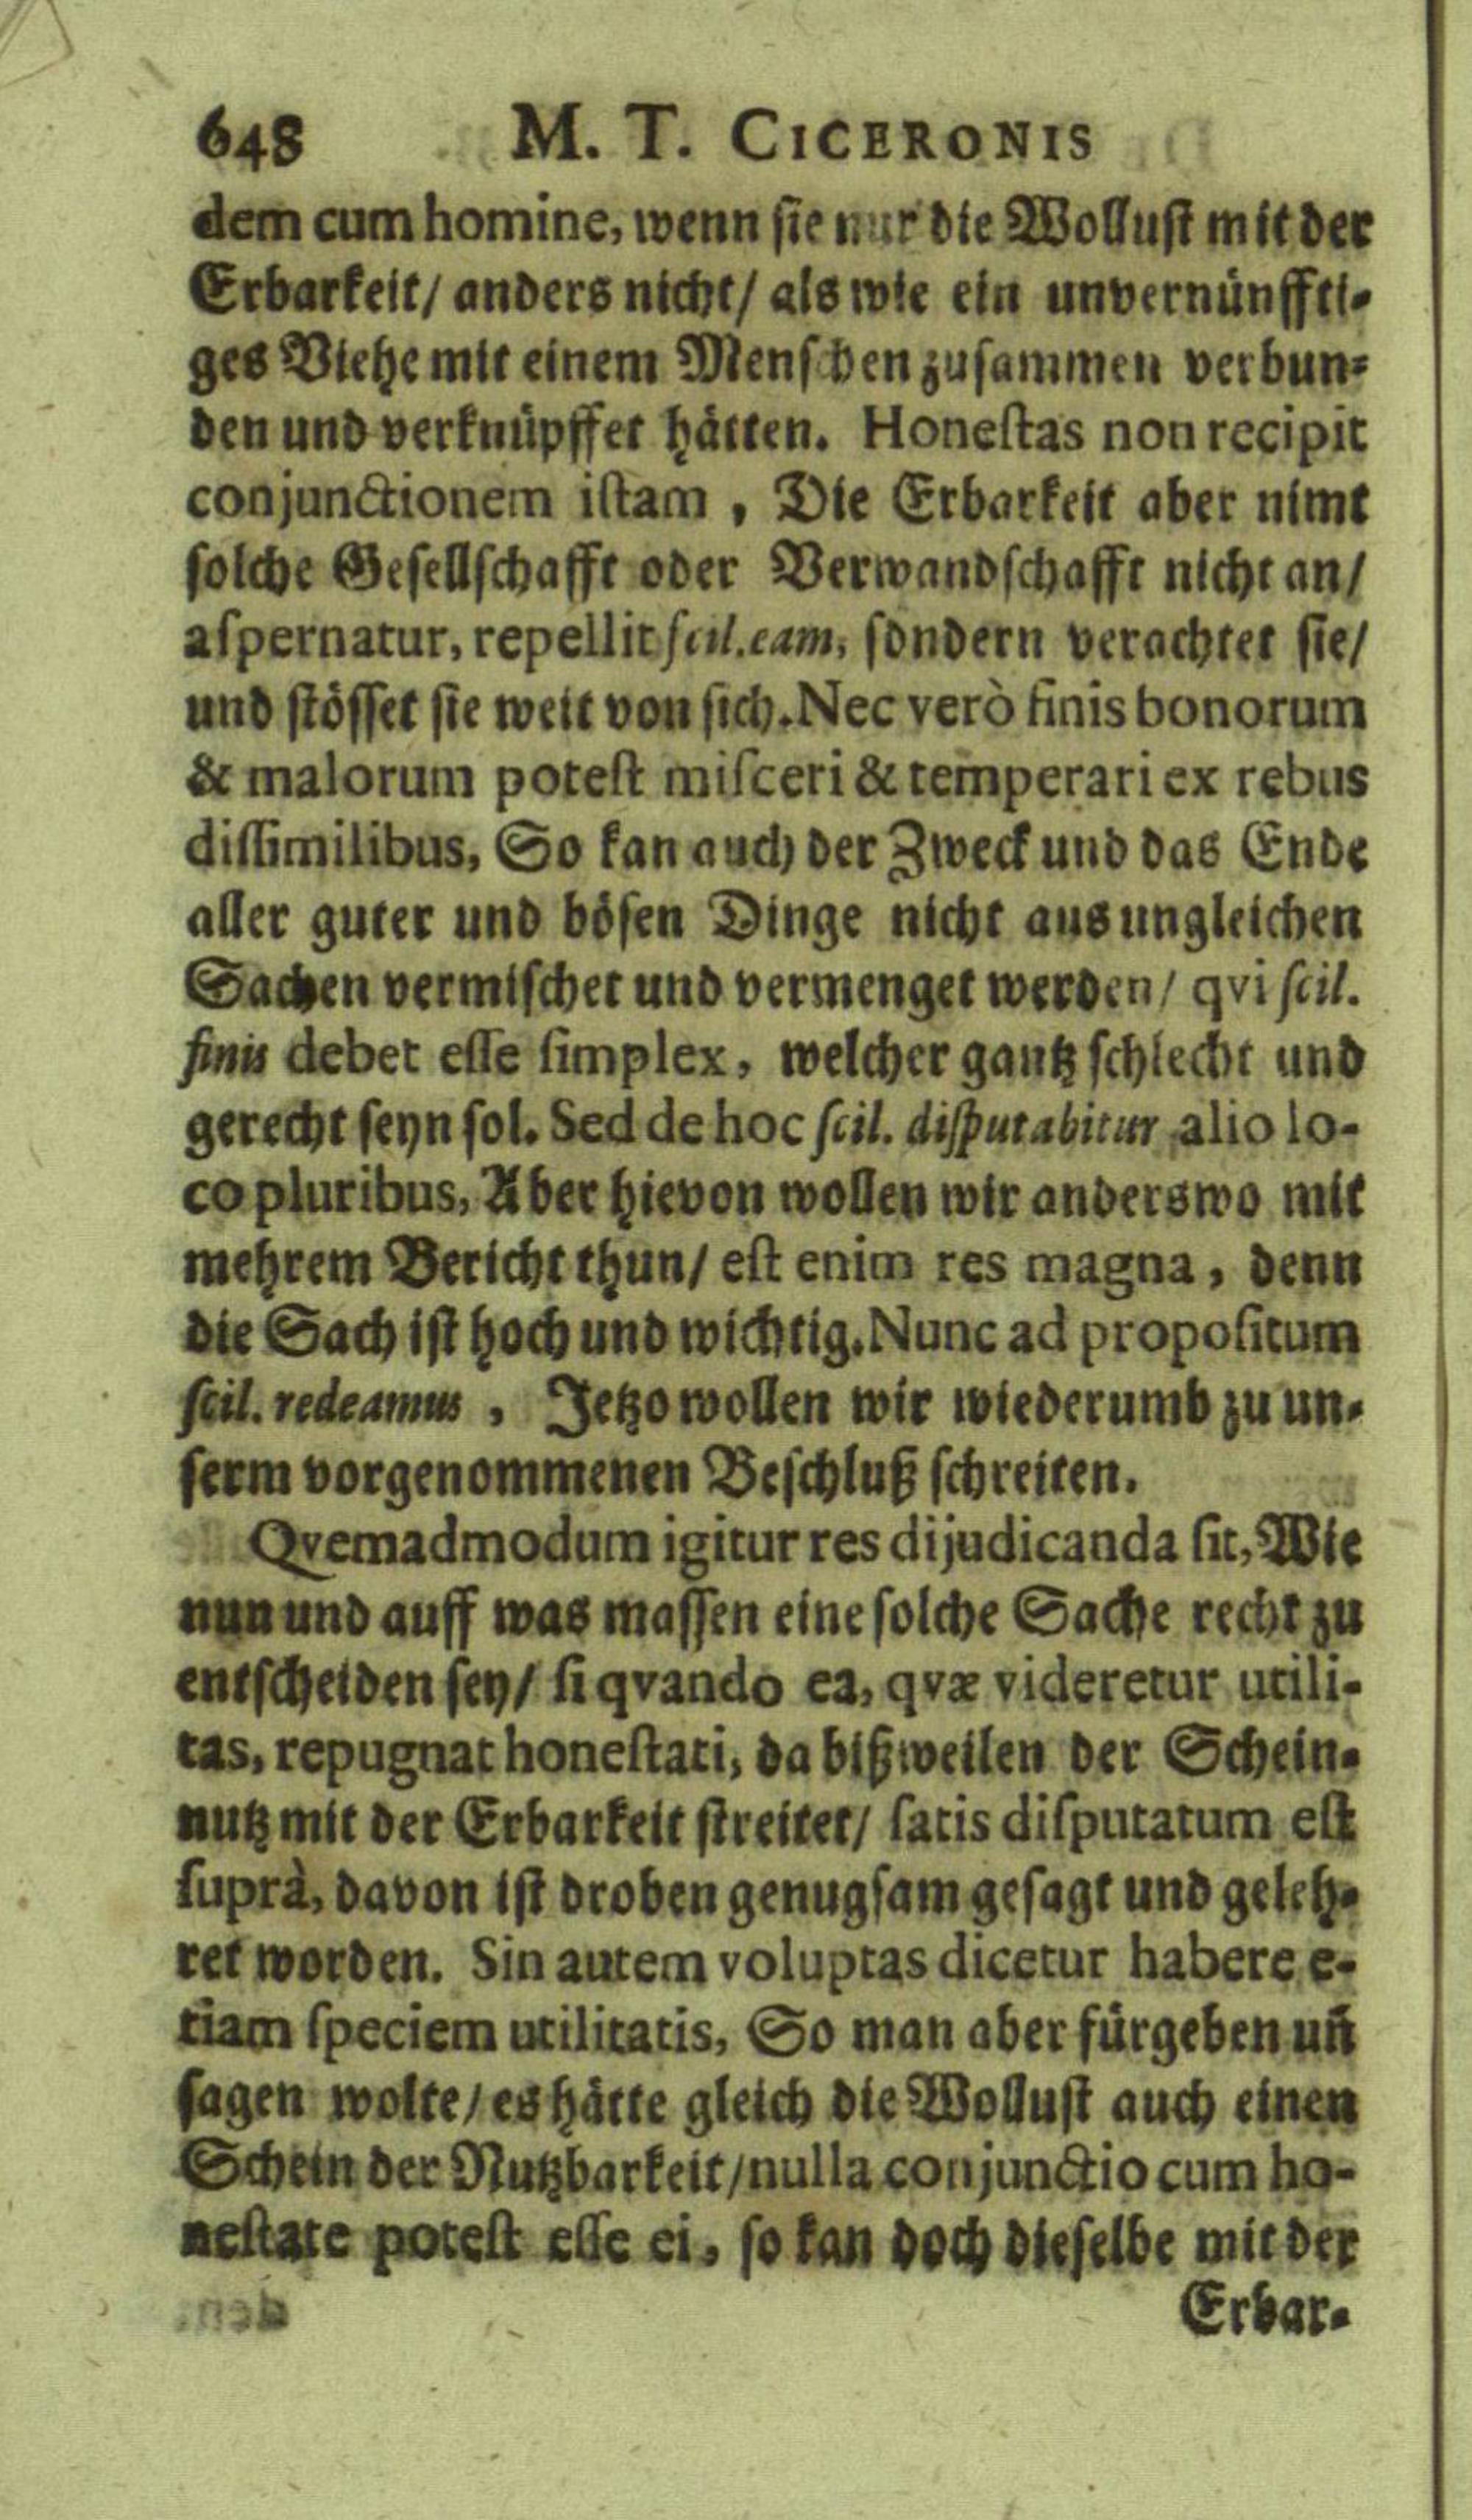 648 M. T. CICERONIS
dem cum homine, wenn sie nur die Wollust mit der
Erbarkeit/ anders nicht/ als wie ein unvernünffti-
ges Viehe mit einem Menschen zusammen verbun-
den und verknüpffet hätten. Honeſtas non recipit
conjunctionem iſtam, Die Erbarkeit aber nimt
solche Gesellschafft oder Verwandschafft nicht an/
aſpernatur, repellit ſcil. eam, sondern verachtet sie/
und stösset sie weit von sich. Nec verò finis bonorum
& malorum poteſt miſceri & temperari ex rebus
diſſimilibus, So kan auch der Zweck und das Ende
aller guter und bösen Dinge nicht aus ungleichen
Sachen vermischet und vermenget werden/ qvi ſcil.
finis debet eſſe ſimplex, welcher gantz schlecht und
gerecht seyn sol. Sed de hoc ſcil. diſputabitur alio lo-
co pluribus, Aber hievon wollen wir anderswo mit
mehrem Bericht thun/ eſt enim res magna, denn
die Sach ist hoch und wichtig. Nunc ad propoſitum
ſcil. redeamus, Jetzo wollen wir wiederumb zu un-
serm vorgenommenen Beschluß schreiten.
Qvemadmodum igitur res dijudicanda ſit, Wie
nun und auff was massen eine solche Sache recht zu
entscheiden sey/ ſi qvando ea, qvæ videretur utili-
tas, repugnat honeſtati, da bißweilen der Schein-
nutz mit der Erbarkeit streitet/ ſatis diſputatum eſt
ſuprà, davon ist droben genugsam gesagt und geleh-
ret worden. Sin autem voluptas dicetur habere e-
tiam ſpeciem utilitatis, So man aber fürgeben uñ
sagen wolte/ es hätte gleich die Wollust auch einen
Schein der Nutzbarkeit/ nulla conjunctio cum ho-
neſtate poteſt eſſe ei, so kan doch dieselbe mit der
Erbar-